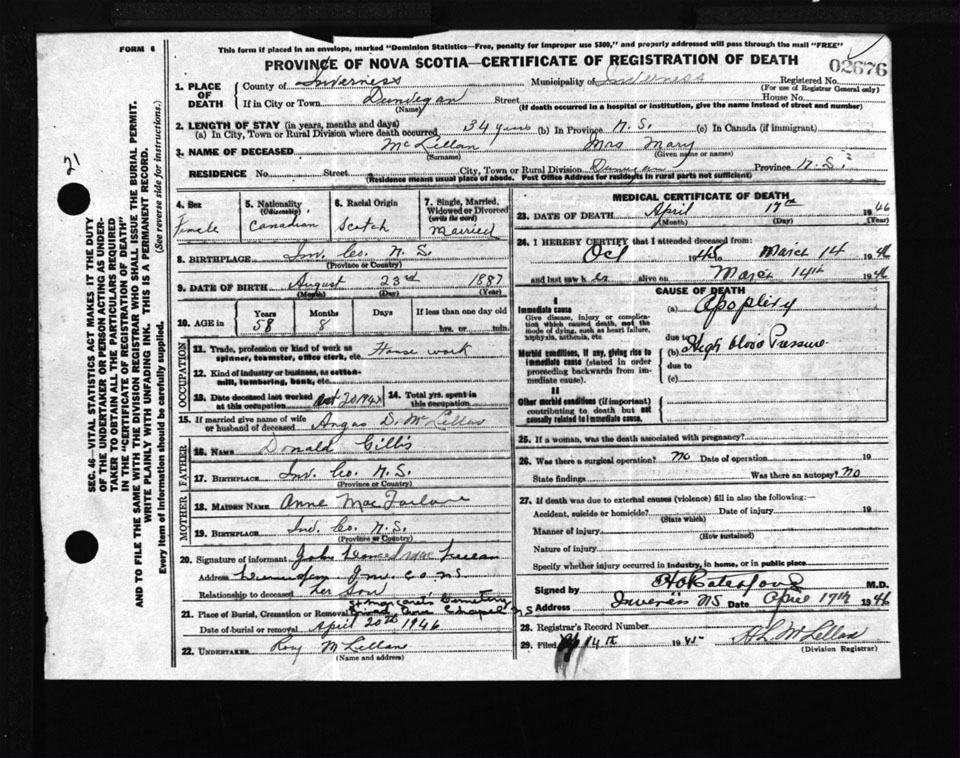 FORM 6
This form if placed in an envelope, marked "Dominion Statistics—Free, penalty for improper use $300," and properly addressed will pass through the mail "FREE"
PROVINCE OF NOVA SCOTIA—CERTIFICATE OF REGISTRATION OF DEATH
02676
21
SEC. 46—VITAL STATISTICS ACT MAKES IT THE DUTY
OF THE UNDERTAKER OR PERSON ACTING AS UNDER-
TAKER TO OBTAIN ALL THE PARTICULARS REQUIRED
IN THE "CERTIFICATE OF REGISTRATION OF DEATH"
AND TO FILE THE SAME WITH THE DIVISION REGISTRAR WHO SHALL ISSUE THE BURIAL PERMIT.
WRITE PLAINLY WITH UNFADING INK. THIS IS A PERMANENT RECORD.
Every item of information should be carefully supplied. (See reverse side for instructions.)
1. PLACE OF DEATH
County of Inverness Municipality of Inverness Registered No.
(For use of Registrar General only)
If in City or Town Dunvegan Street House No.
(Name) (If death occurred in a hospital or institution, give the name instead of street and number)
2. LENGTH OF STAY (in years, months and days)
(a) In City, Town or Rural Division where death occurred 34 years (b) In Province N. S. (c) In Canada (if immigrant)
3. NAME OF DECEASED McLellan Mrs Mary
(Surname) (Given name or names)
RESIDENCE No. Street City, Town or Rural Division Province N. S.
(Residence means usual place of abode. Post Office Address for residents in rural parts not sufficient)
4. Sex Female
5. Nationality (Citizenship) Canadian
6. Racial Origin Scotch
7. Single, Married, Widowed or Divorced (write the word) Married
8. BIRTHPLACE Inv. Co. N. S.
(Province or Country)
9. DATE OF BIRTH August 23rd 1887
(Month) (Day) (Year)
10. AGE in Years Months Days If less than one day old
58 8 hrs. or min.
OCCUPATION
11. Trade, profession or kind of work as
spinner, teamster, office clerk, etc. House work
12. Kind of industry or business, as cotton-
mill, lumbering, bank, etc.
13. Date deceased last worked
at this occupation
14. Total yrs. spent in
this occupation
15. If married give name of wife
or husband of deceased Angus D. McLellan
FATHER
16. NAME Donald Gillis
17. BIRTHPLACE Inv. Co. N. S.
(Province or Country)
MOTHER
18. MAIDEN NAME Anne MacFarlane
19. BIRTHPLACE Inv. Co. N. S.
(Province or Country)
20. Signature of informant John
Address
Relationship to deceased her Son
St Margaret's Cemetery
21. Place of Burial, Cremation or Removal Chapel NS
Date of burial or removal April 20th 1946
22. UNDERTAKER Roy McLellan
(Name and address)
MEDICAL CERTIFICATE OF DEATH
23. DATE OF DEATH April 17th 1946
(Month) (Day) (Year)
24. I HEREBY CERTIFY that I attended deceased from:
Oct 1945 March 14 1946
and last saw her alive on March 14th 1946
CAUSE OF DEATH
I
Immediate cause
Give disease, injury or complica-
tion which caused death, not the
mode of dying, such as heart failure,
asphyxia, asthenia, etc.
(a) Apoplexy
due to
Morbid conditions, if any, giving rise to
immediate cause (stated in order
proceeding backwards from im-
mediate cause).
(b) High blood Pressure
due to
(c)
II
Other morbid conditions (if important)
contributing to death but not
causally related to immediate cause.
25. If a woman, was the death associated with pregnancy?
26. Was there a surgical operation? No Date of operation 19
State findings Was there an autopsy? No
27. If death was due to external causes (violence) fill in also the following:—
Accident, suicide or homicide? Date of injury 19
(State which)
Manner of injury
(How sustained)
Nature of injury
Specify whether injury occurred in industry, in home, or in public place
Signed by M.D.
Address Inverness NS Date April 17th 1946
28. Registrar's Record Number
29. Filed 14th 1945 McLellan
(Division Registrar)